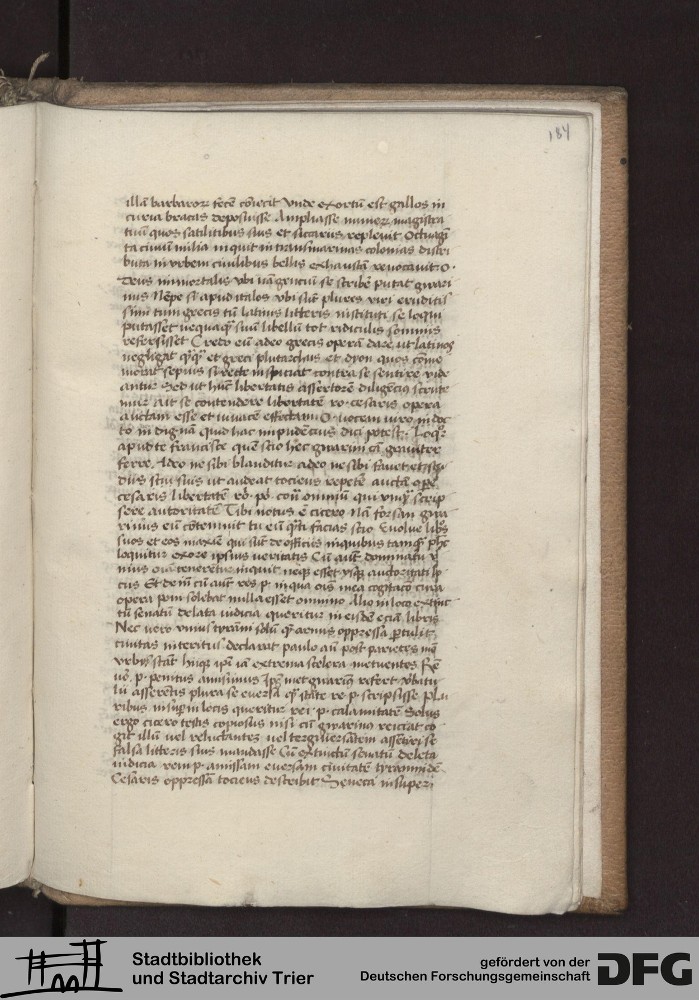 184
illā barbaror fecē cōiecit Vnde exortū est gallos in
curia bracas deposuisse Ampliasse numer magistra
tuū quos satilitibus suis et sicarus repleuit Octuagī
ta ciuiū milia inquit in transmarinas colonias distri
buta in vrbem ciuilibus bellis exhaustā reuocauit O
Deus inmortalis vbi nā genciū se scribē putat gwari
nus Nēpe si apud italos vbi sūt plures viri eruditis
simi tum grecis tū latinis litteris instituti se loqui
putasset nequaq̄ suū libellū tot ridiculis somnis
refersisset Credo eū adeo grecis operā dare ut latinos
negligat q̄q̄ et greci plutarchus et dyon quos cōme
morat sepius si recte inspiciat contra se sentire vide
antur Sed ut hūc libertatis assertorē diligēcius scrute
mur ait se contendere libertatē ro. cesaris opera
auctam esse et iuuacē effectam O uocem uiro in doc
to indignā Quid hac inpudēcius dici potest Loq̄r
apud te francisce quē scio hec guarini cā grauiter
ferre. Adeo ne sibi blanditur adeo ne sibi fauet et
diis suis ut audeat tociens repetē auctā ope
cesaris libertatē ro. po. contū omniū qui vnq̄ scrip
sere autoritatē Tibi notus ē cicero Nā forsan gwa
rinus eū cōtemnit tu eū q̄ti facias scio Euolue libs
suos et eos maxīe qui sūt de officiis in quibus tamq̄ phs
loquitur ex ore ipsius ueritatis Cū aūt dominatu v
nius oīa tenerētur inquit neq̄ esset vsq̄ auctoritati lo
cus Et deīn cū aūt res p. in qua ois mea cogitacō cura
opera poni solebat nulla esset omnino Alio in loco extinc
tū senatū deleta iudicia queritur in eisdē eciā libris
Nec uero vnius tyranni solū q̄ armis oppressa ptulit
ciuitas interitus declarat paulo aū post parietes inq̄
vrbis stāt hiiq̄ ipī iā extrema scelera metuentes Rē
uo. p. penitus amisimus
lu asserētis plura se euersa q̄ state re p. scripsisse Plu
ribus insup in locis queritur rei p. calamitatē Solus
ergo cicero testis copiosus nisi cū gwarinus reiciat co
git illū uel reluctantez uel tergiuersātem assētiri se
falsa litteris suis mandasse Cū extinctū senatū deleta
iudicia rem p. amissam euersam ciuitatē tyrannide
Cesaris oppressā tociens describit Seneca insuper
Stadtbibliothek
und Stadtarchiv Trier
gefördert von der
Deutschen Forschungsgemeinschaft
DFG